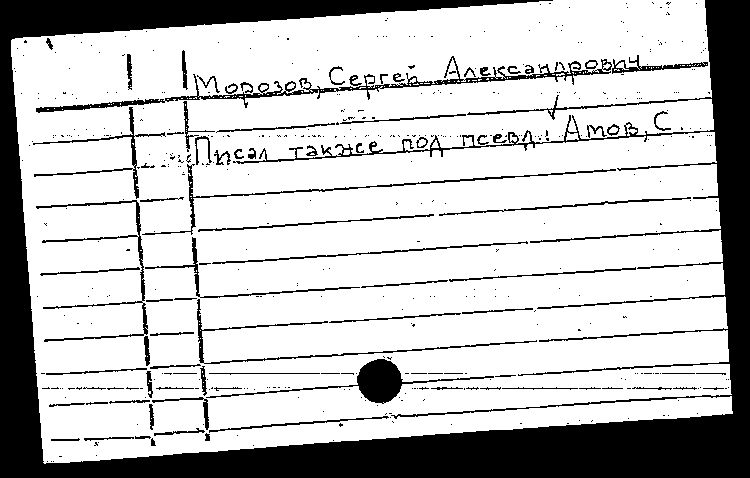 Морозов, Сергей Александрович
Писал также под псевд.: Амов, С.